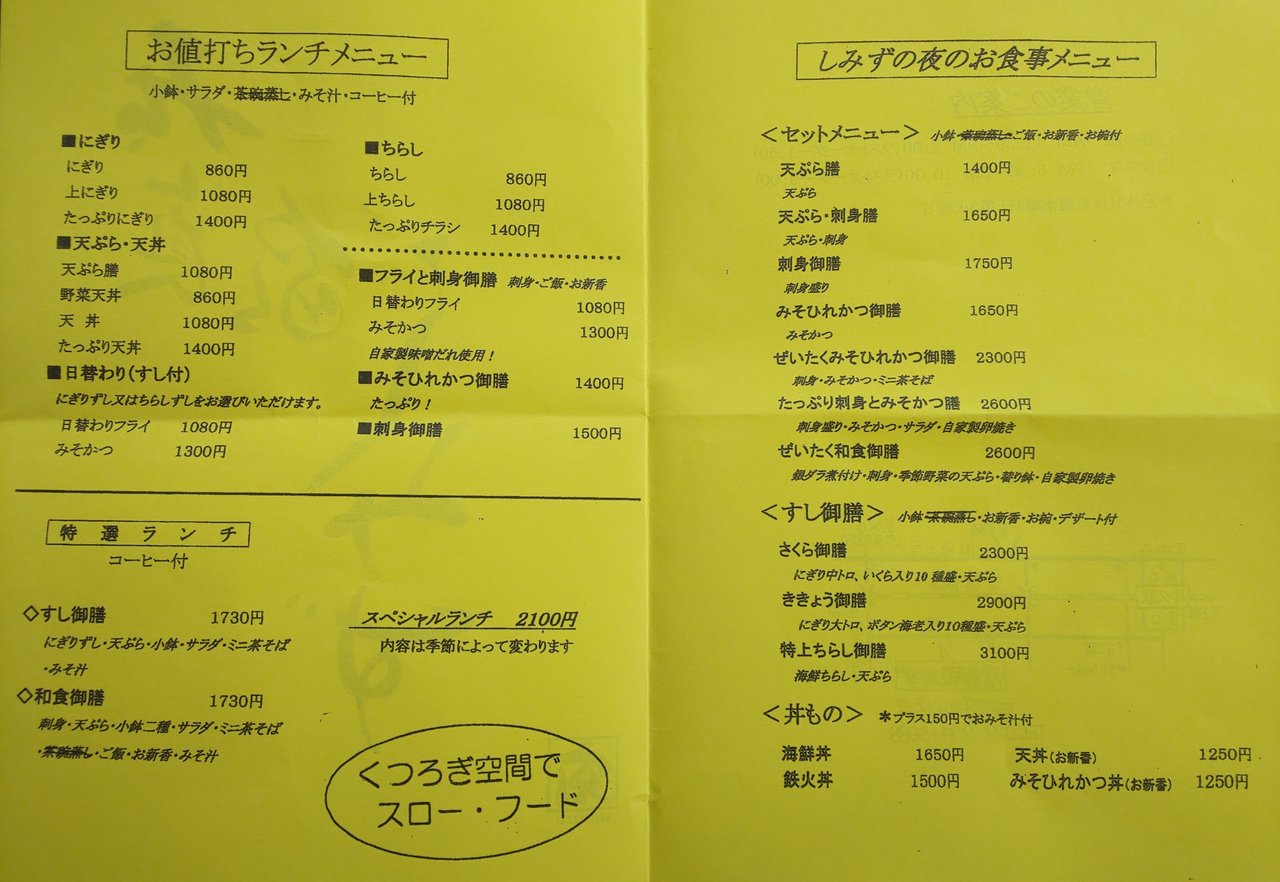 お値打ちランチメニュー
小鉢・サラダ・茶碗蒸し・みそ汁・コーヒー付
■にぎり
にぎり 860円
上にぎり 1080円
たっぷりにぎり 1400円
■天ぷら・天丼
天ぷら膳 1080円
野菜天丼 860円
天 丼 1080円
たっぷり天丼 1400円
■日替わり(すし付)
にぎりずし又はちらしずしをお選びいただけます。
日替わりフライ 1080円
みそかつ 1300円
■ちらし
ちらし 860円
上ちらし 1080円
たっぷりチラシ 1400円
■フライと刺身御膳 刺身・ご飯・お新香
日替わりフライ 1080円
みそかつ 1300円
自家製味噌だれ使用！
■みそひれかつ御膳 1400円
たっぷり！
■刺身御膳 1500円
特選ランチ
コーヒー付
◇すし御膳 1730円
にぎりずし・天ぷら・小鉢・サラダ・ミニ茶そば
・みそ汁
◇和食御膳 1730円
刺身・天ぷら・小鉢二種・サラダ・ミニ茶そば
・茶碗蒸し・ご飯・お新香・みそ汁
スペシャルランチ 2100円
内容は季節によって変わります
くつろぎ空間で
スロー・フード
しみずの夜のお食事メニュー
＜セットメニュー＞ 小鉢・茶碗蒸し・ご飯・お新香・お椀付
天ぷら膳 1400円
天ぷら
天ぷら・刺身膳 1650円
天ぷら・刺身
刺身御膳 1750円
刺身盛り
みそひれかつ御膳 1650円
みそかつ
ぜいたくみそひれかつ御膳 2300円
刺身・みそかつ・ミニ茶そば
たっぷり刺身とみそかつ膳 2600円
刺身盛り・みそかつ・サラダ・自家製卵焼き
ぜいたく和食御膳 2600円
銀ダラ煮付け・刺身・季節野菜の天ぷら・替り鉢・自家製卵焼き
＜すし御膳＞ 小鉢・茶碗蒸し・お新香・お椀・デザート付
さくら御膳 2300円
にぎり中トロ、いくら入り10種盛・天ぷら
ききょう御膳 2900円
にぎり大トロ、ボタン海老入り10種盛・天ぷら
特上ちらし御膳 3100円
海鮮ちらし・天ぷら
＜丼もの＞ ＊プラス150円でおみそ汁付
海鮮丼 1650円 天丼(お新香) 1250円
鉄火丼 1500円 みそひれかつ丼(お新香) 1250円